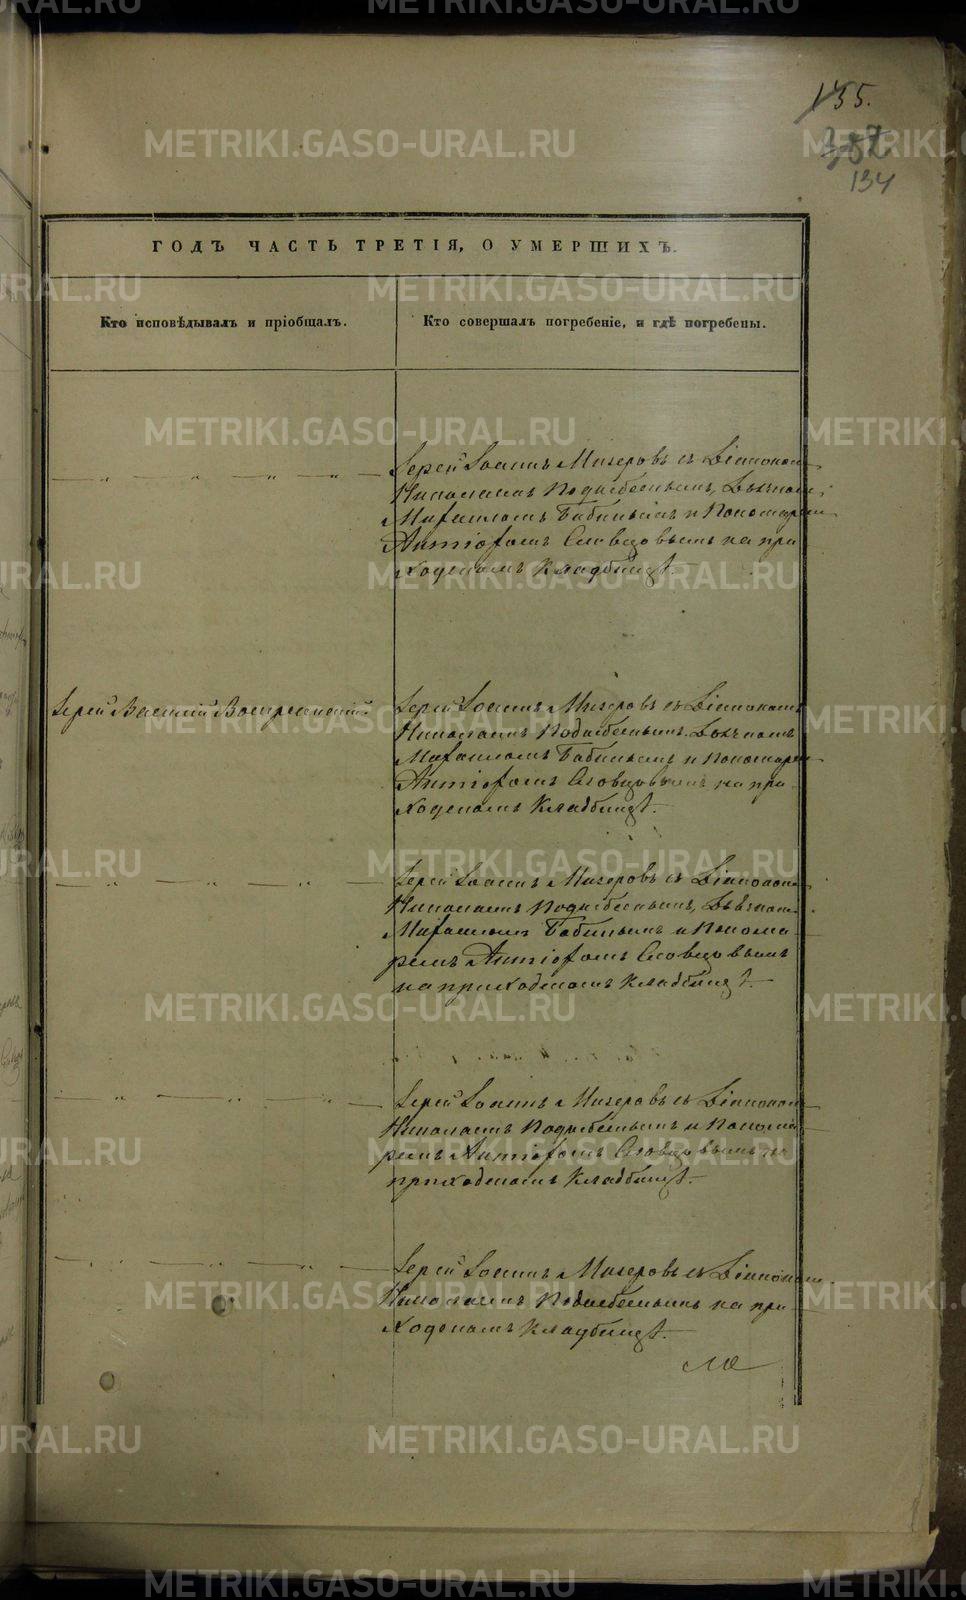 155.
382
134
ГОДЪ ЧАСТЬ ТРЕТІЯ, О УМЕРШИХЪ.
Кто исповѣдывалъ и пріобщалъ.
Кто совершалъ погребеніе, и гдѣ погребены.
Іерей Іоаннъ Мизеровъ съ Діакономъ
Николаемъ
Михаиломъ Бабинымъ и Пономаремъ
Антіохомъ Словцовымъ на при
ходскомъ кладбищѣ.
Іерей Василій Воскресенскій
Іерей Іоаннъ Мизеровъ съ Діакономъ
Николаемъ
Михаиломъ Бабинымъ и Пономарем
Антіохомъ Словцовымъ на при-
ходскомъ Кладбищѣ.
Іерей Іоаннъ Мизеровъ съ Діакономъ
Николаемъ
Михаиломъ Бабинымъ и Понома
ремъ Антіохомъ Словцовымъ
на приходскомъ кладбищѣ
Іерей Іоаннъ Мизеровъ съ Діакономъ
Николаемъ и Понома
ремъ Антіохомъ Словцовымъ на
приходскомъ Кладбищѣ.
Іерей Іоаннъ Мизеровъ съ Діакономъ
Николаемъ на при-
ходскомъ кладбищѣ.
METRIKI.GASO-URAL.RU